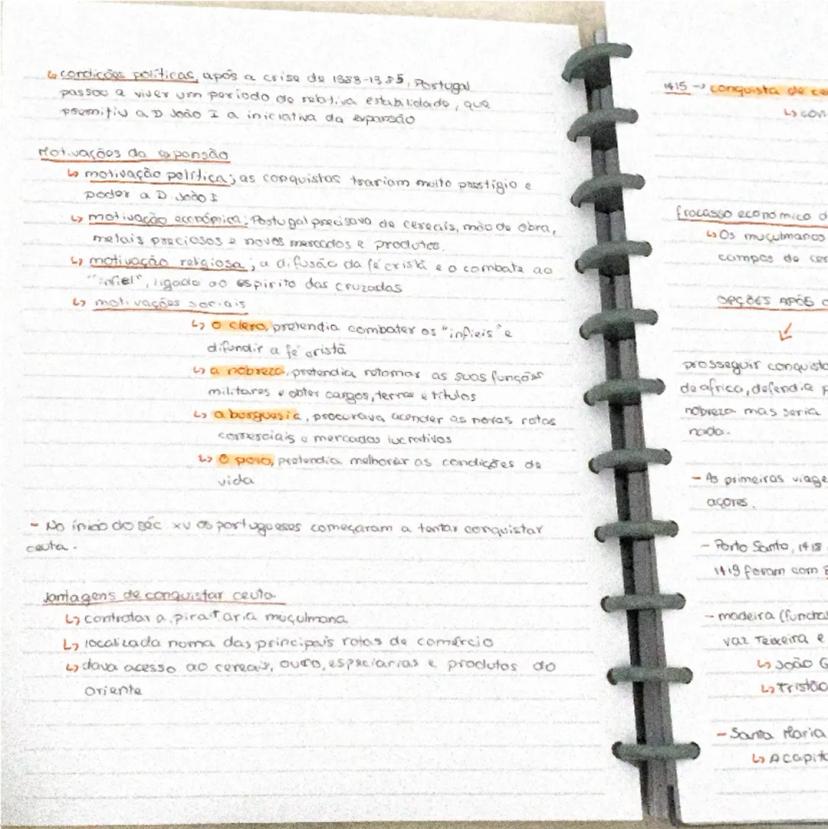 ↳ condições políticas, após a crise de 1383-1385, Portugal
passou a viver um período de relativa estabilidade, que
permitiu a D João I a iniciativa da expansão
Motivações da expansão
↳ motivação política; as conquistas trariam muito prestígio e
poder a D João I
↳ motivação económica; Portugal precisava de cereais, mão de obra,
metais preciosos e novos mercados e produtos.
↳ motivação religiosa; a difusão da fé cristã e o combate ao
"infiel", ligado ao espirito das cruzadas
↳ motivações sociais
↳ o clero, pretendia combater os "infieis" e
difundir a fé cristã
↳ a nobreza, pretendia retomar as suas funções
militares e obter cargos, terras e títulos
↳ a burguesia, procurava acender as novas rotas
comerciais e mercados lucrativos
↳ O povo, pretendia melhorar as condições de
vida
- No ínicio do séc XV os portugueses começaram a tentar conquistar
ceuta.
Vantagens de conquistar ceuta
↳ controlar a pirataria muçulmana
↳ localizada numa das principais rotas de comércio
↳ dava acesso ao cereais, ouro, especiarias e produtos do
oriente
1415 → conquista de ce
↳ con
fracasso económico d
↳ Os muçulmanos
campos de cer
OPÇÕES APÓS
↙
prosseguir conquist
de africa, defendia p
nobreza mas seria
nada.
- As primeiras viage
açores.
- Porto Santo, 1418
1419 foram com
- madeira (funchal
vaz Teixeira e
↳ João G
↳ Tristão
- Santa Maria
↳ A capit